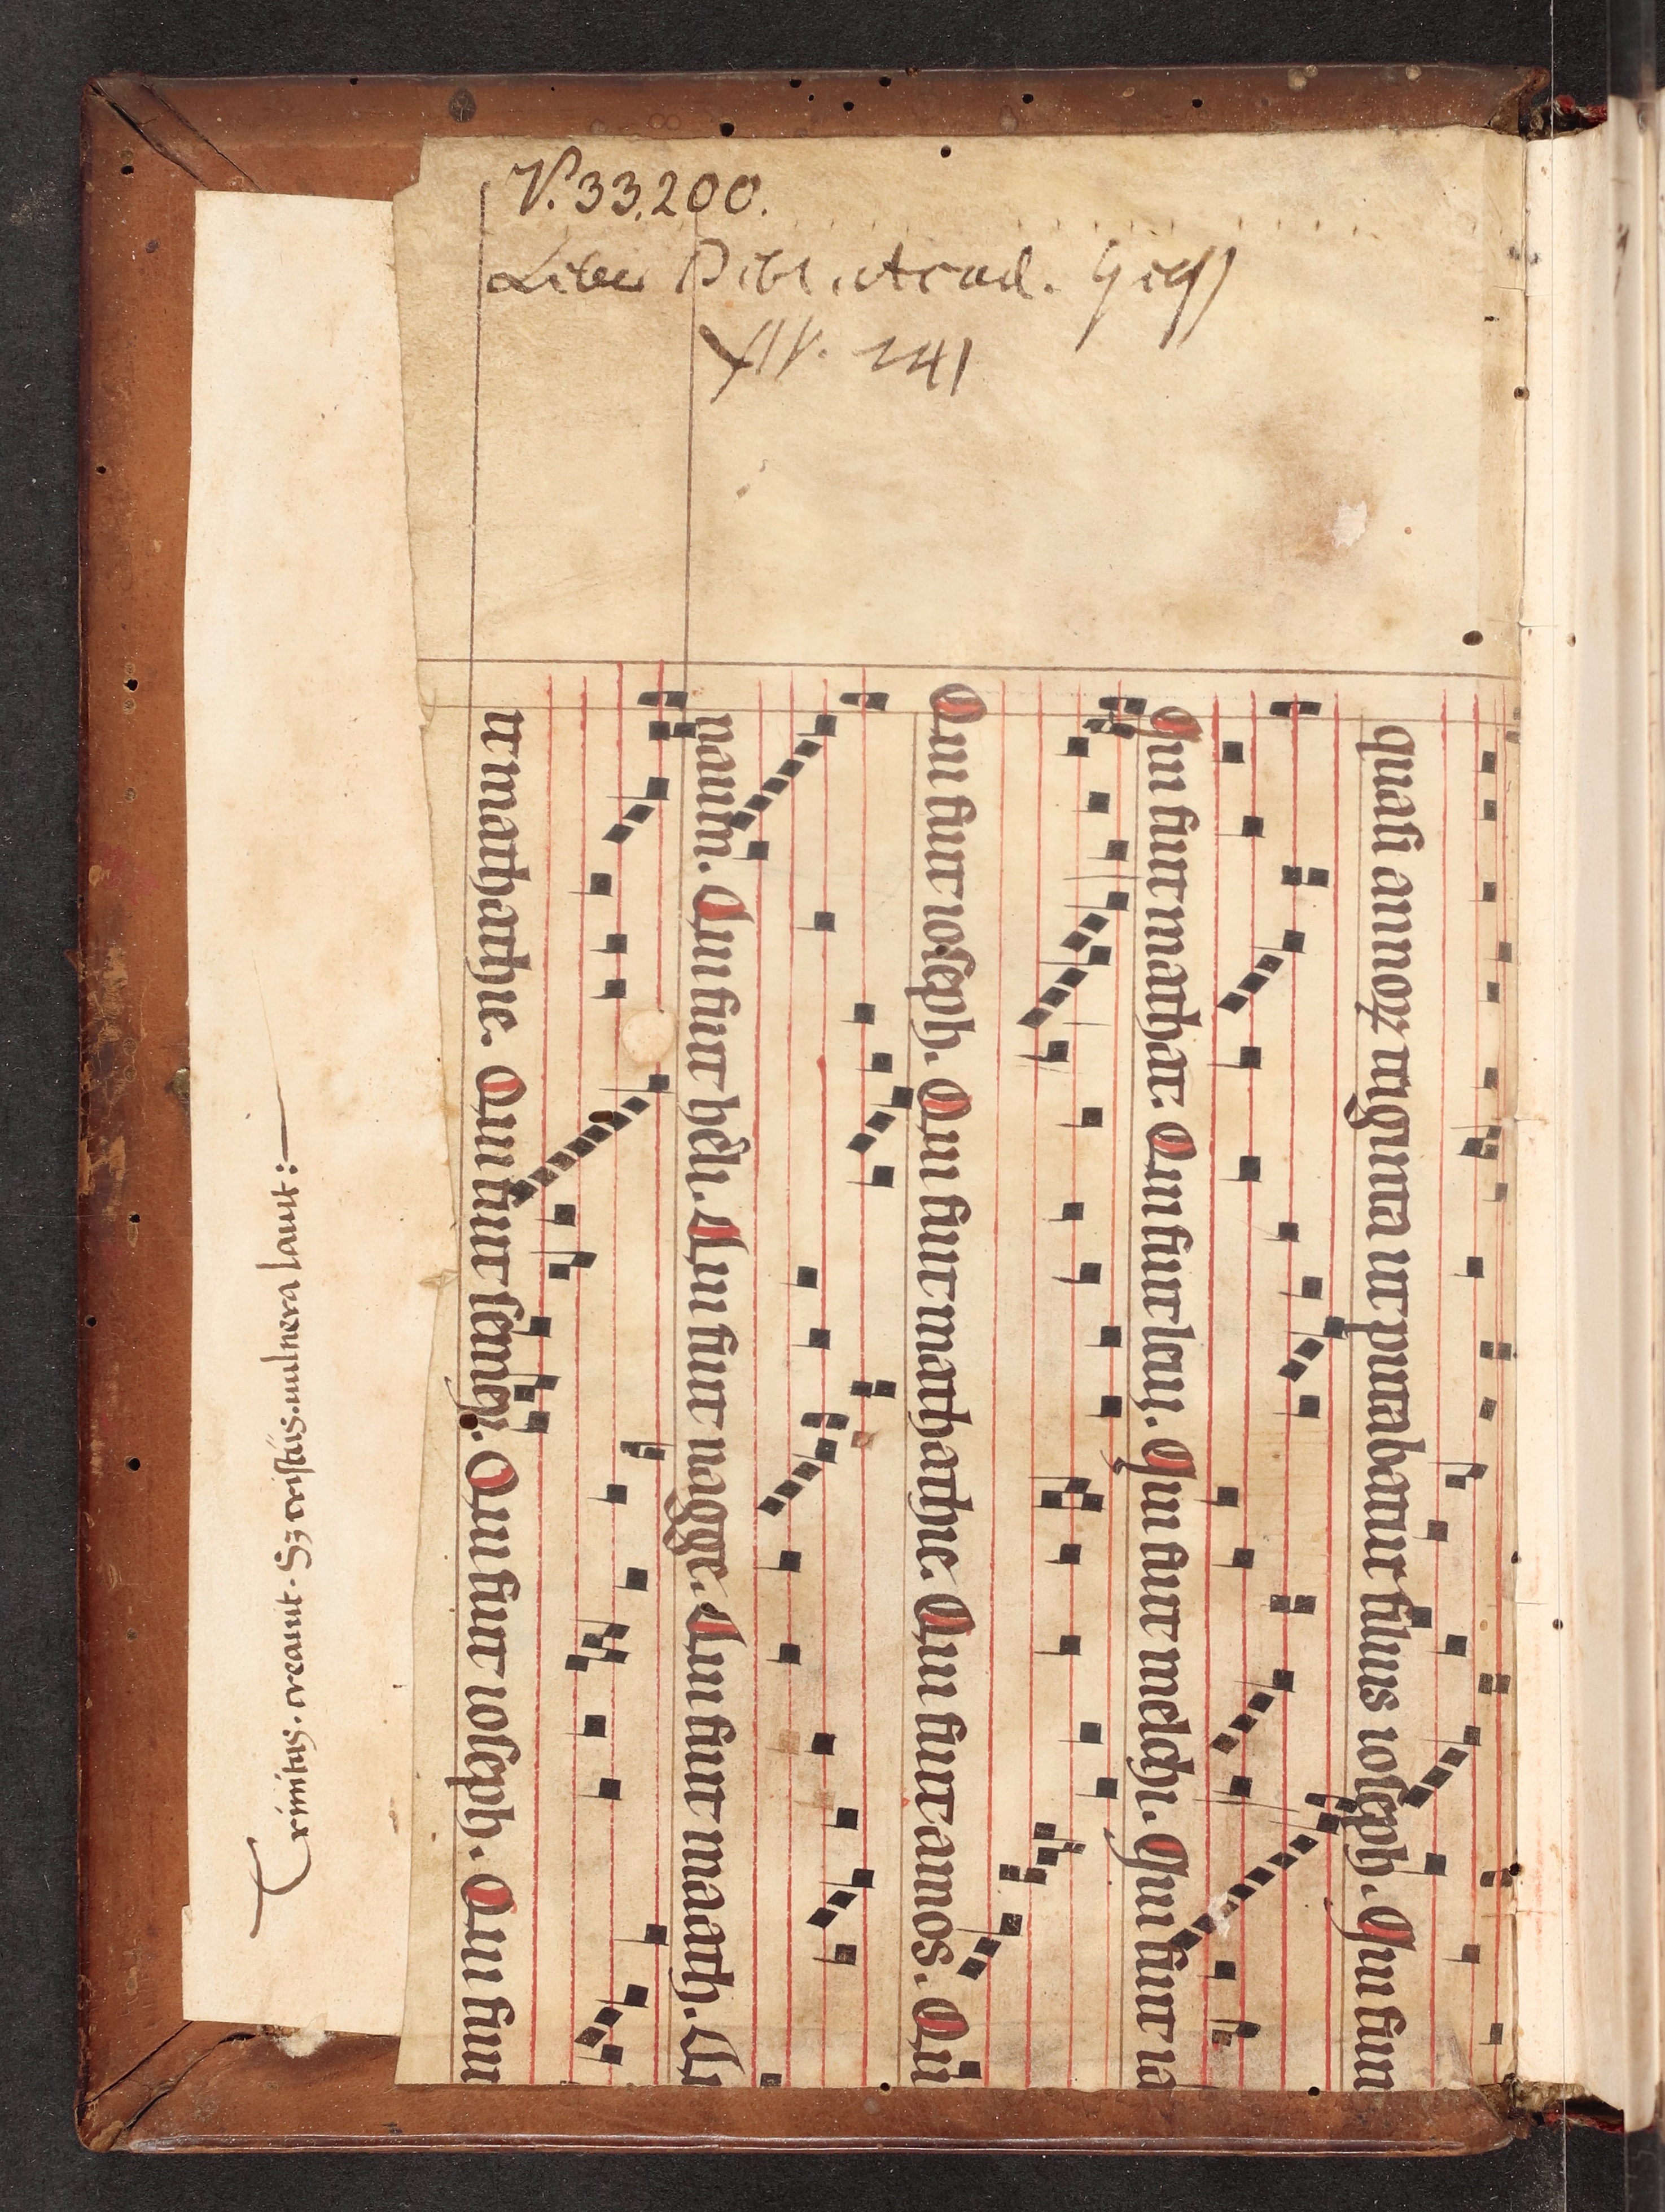 V. 33,200.
Liber Bibl. Acad. Giess
XIV. 241
quasi annoꝝ triginta ut putabatur filius ioseph. Qui fuit
Qui fuit mathat. Qui fuit leui. Qui fuit melchi. Qui fuit ia
Qui fuit ioseph. Qui fuit mathathie. Qui fuit amos. Qui
naum. Qui fuit hesli. Qui fuit nagge. Qui fuit maath. Q
it mathathie. Qui fuit semei. Qui fuit ioseph. Qui fuit
Trinitas. creauit. Sꝫ cristus. uulnera lauit: